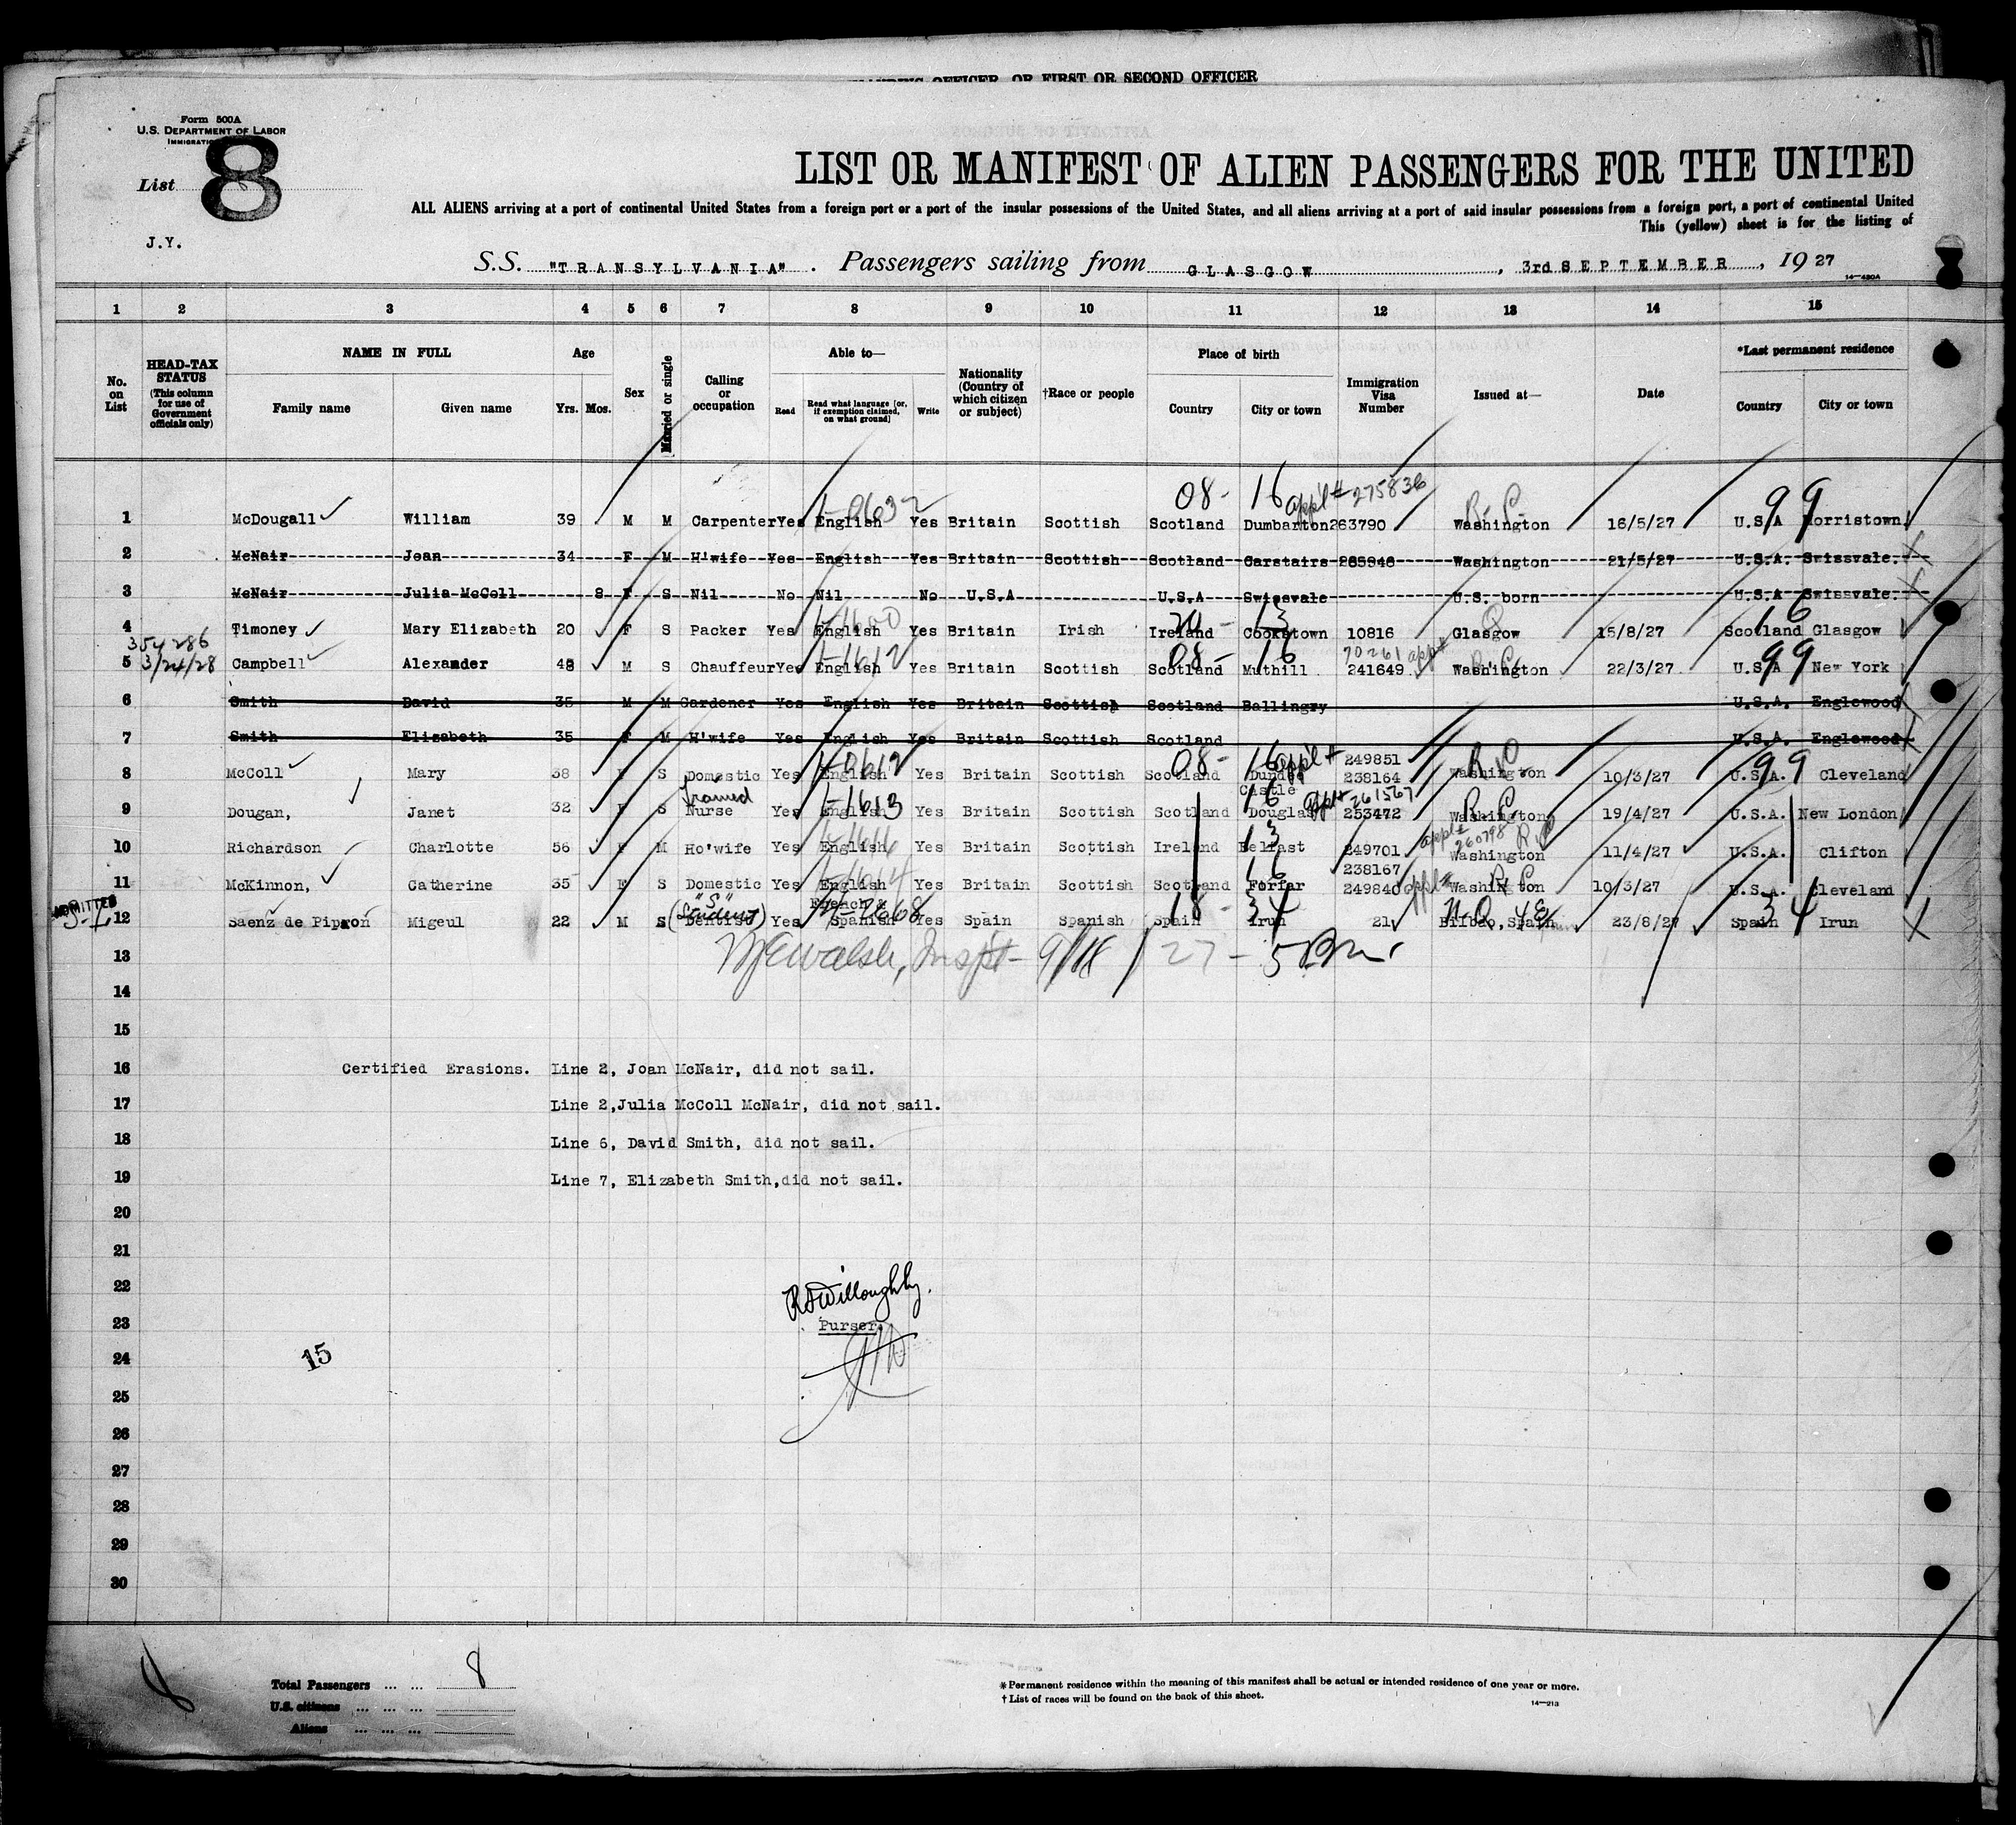 OFFICER, OR FIRST OR SECOND OFFICER
Form 500A
U.S. DEPARTMENT OF LABOR
List 8
J.Y.
LIST OR MANIFEST OF ALIEN PASSENGERS FOR THE UNITED
ALL ALIENS arriving at a port of continental United States from a foreign port or a port of the insular possessions of the United States, and all aliens arriving at a port of said insular possessions from a foreign port, a port of continental United
This (yellow) sheet is for the listing of
S.S. "TRANSYLVANIA". Passengers sailing from GLASGOW, 3rd SEPTEMBER, 19 27
14—430A
1 2 3 4 5 6 7 8 9 10 11 12 13 14 15
No. on List
HEAD-TAX STATUS (This column for use of Government officials only)
NAME IN FULL
Family name Given name
Age
Yrs. Mos.
Sex
Married or single
Calling or occupation
Able to—
Read Read what language (or, if exemption claimed, on what ground) Write
Nationality (Country of which citizen or subject)
†Race or people
Place of birth
Country City or town
Immigration Visa Number
Issued at—
Date
*Last permanent residence
Country City or town
08- 16 appl# 275836 99
1 McDougall William 39 M M Carpenter Yes English Yes Britain Scottish Scotland Dumbarton 263790 Washington 16/5/27 U.S.A Morristown
2 McNair Jean 34 F M H'wife Yes English Yes Britain Scottish Scotland Carstairs 265946 Washington 21/5/27 U.S.A. Swissvale.
3 McNair Julia McColl 8 F S Nil No Nil No U.S.A U.S.A Swissvale U.S. born U.S.A Swissvale.
4 Timoney Mary Elizabeth 20 F S Packer Yes English Yes Britain Irish Ireland Cookstown 10816 Glasgow 15/8/27 Scotland Glasgow
354286
3/24/28
08- 16 70261 appl# 99
5 Campbell Alexander 48 M S Chauffeur Yes English Yes Britain Scottish Scotland Muthill 241649 Washington 22/3/27 U.S.A New York
6 Smith David 35 M M Gardener Yes English Yes Britain Scottish Scotland Ballingry U.S.A. Englewood
7 Smith Elizabeth 35 F M H'wife Yes English Yes Britain Scottish Scotland U.S.A. Englewood
08- 16 appl# 249851 99
8 McColl Mary 38 F S Domestic Yes English Yes Britain Scottish Scotland Dundee 238164 Washington 10/3/27 U.S.A. Cleveland
trained Castle appl# 261567
9 Dougan, Janet 32 F S Nurse Yes English Yes Britain Scottish Scotland Douglas 253472 Washington 19/4/27 U.S.A. New London
appl# 260798
10 Richardson Charlotte 56 F M Ho'wife Yes English Yes Britain Scottish Ireland Belfast 249701 Washington 11/4/27 U.S.A. Clifton
238167
11 McKinnon, Catherine 35 F S Domestic Yes English Yes Britain Scottish Scotland Forfar 249840 appl# Washington 10/3/27 U.S.A. Cleveland
ADMITTED
"S" (Student) French & 18- 34 34
12 Saenz de Pipaon Migeul 22 M S Dentist Yes Spanish Yes Spain Spanish Spain Irun 21 Bilbao, Spain 23/8/27 Spain Irun
13
14
15
16 Certified Erasions. Line 2, Joan McNair, did not sail.
17 Line 2,Julia McColl McNair, did not sail.
18 Line 6, David Smith, did not sail.
19 Line 7, Elizabeth Smith,did not sail.
20
21
22 Willoughby.
23 Purser.
24 15
25
26
27
28
29
30
Total Passengers ... ... 8
U.S. citizens ... ... ...
Aliens ... ... ...
*Permanent residence within the meaning of this manifest shall be actual or intended residence of one year or more.
†List of races will be found on the back of this sheet.
14—213